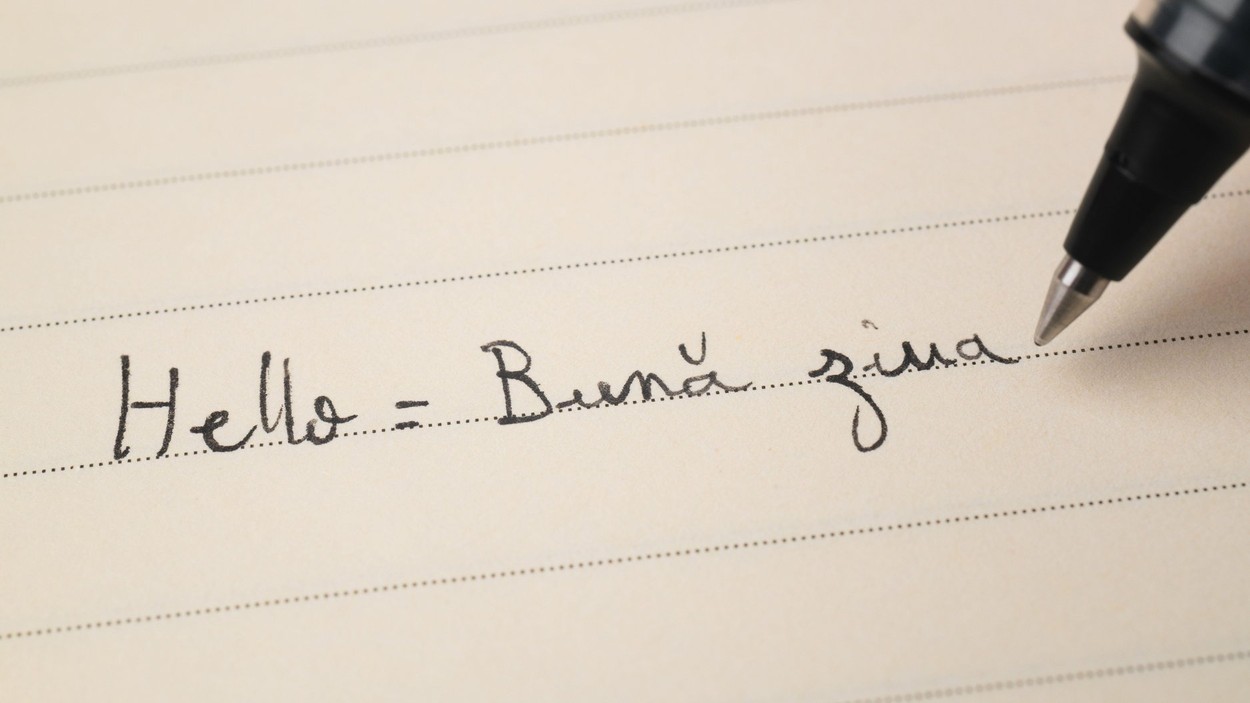 Hello = Bună ziua